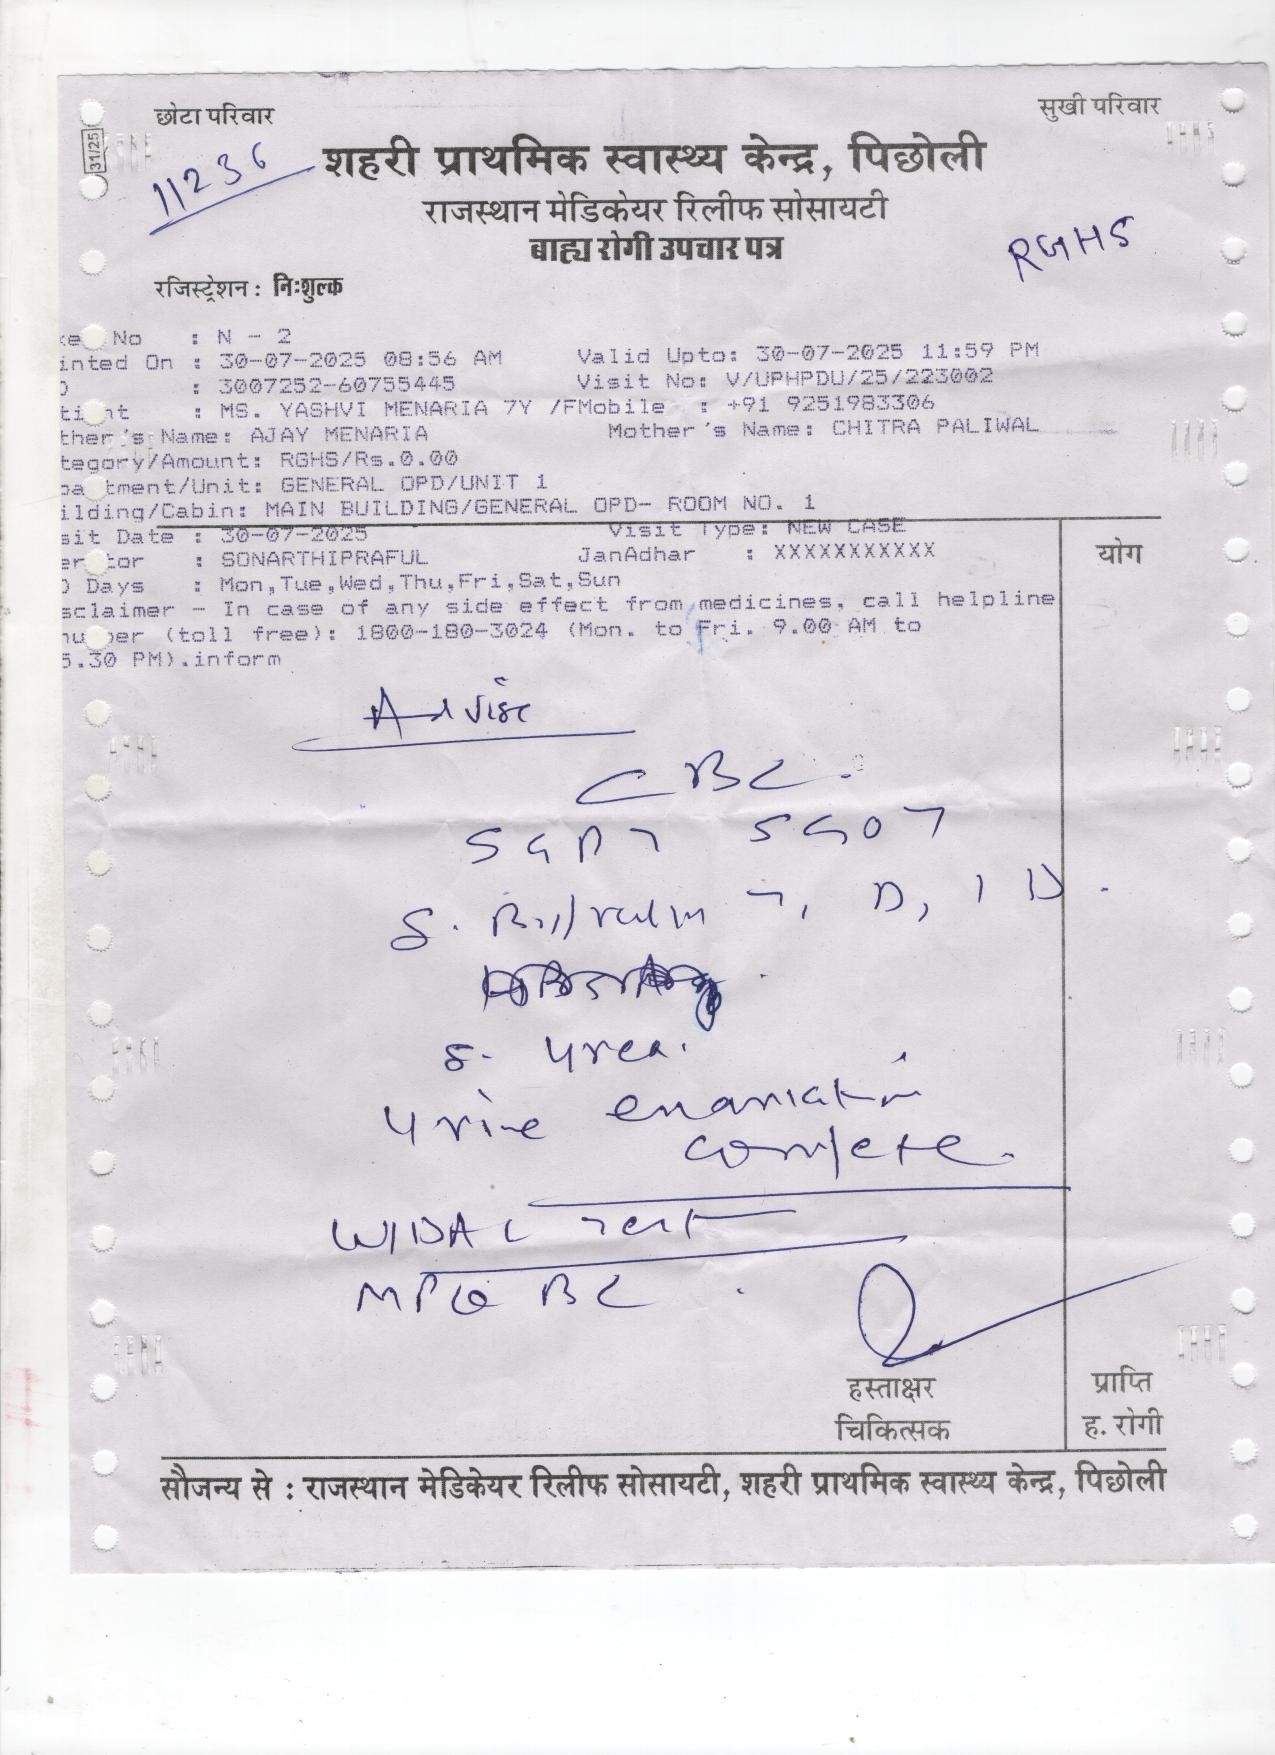 छोटा परिवार
सुखी परिवार
31/25
11236
शहरी प्राथमिक स्वास्थ्य केन्द्र, पिछोली
राजस्थान मेडिकेयर रिलीफ सोसायटी
बाह्य रोगी उपचार पत्र
RGHS
रजिस्ट्रेशन : निःशुल्क
No : N - 2
inted On : 30-07-2025 08:56 AM Valid Upto: 30-07-2025 11:59 PM
: 3007252-60755445 Visit No: V/UPHPDU/25/223002
: MS. YASHVI MENARIA 7Y /FMobile : +91 9251983306
ther's Name: AJAY MENARIA Mother's Name: CHITRA PALIWAL
tegory/Amount: RGHS/Rs.0.00
tment/Unit: GENERAL OPD/UNIT 1
ilding/Cabin: MAIN BUILDING/GENERAL OPD- ROOM NO. 1
sit Date : 30-07-2025 Visit Type: NEW CASE
tor : SONARTHIPRAFUL JanAdhar : XXXXXXXXXXX
योग
Days : Mon,Tue,Wed,Thu,Fri,Sat,Sun
sclaimer - In case of any side effect from medicines, call helpline
er (toll free): 1800-180-3024 (Mon. to Fri. 9.00 AM to
5.30 PM).inform
Advise
CBC.
SGPT SGOT
S. Bilirubin T, D, ID.
S. Urea.
Urine examination
complete.
WIDAL Test
MPQBC.
हस्ताक्षर
चिकित्सक
प्राप्ति
ह. रोगी
सौजन्य से : राजस्थान मेडिकेयर रिलीफ सोसायटी, शहरी प्राथमिक स्वास्थ्य केन्द्र, पिछोली